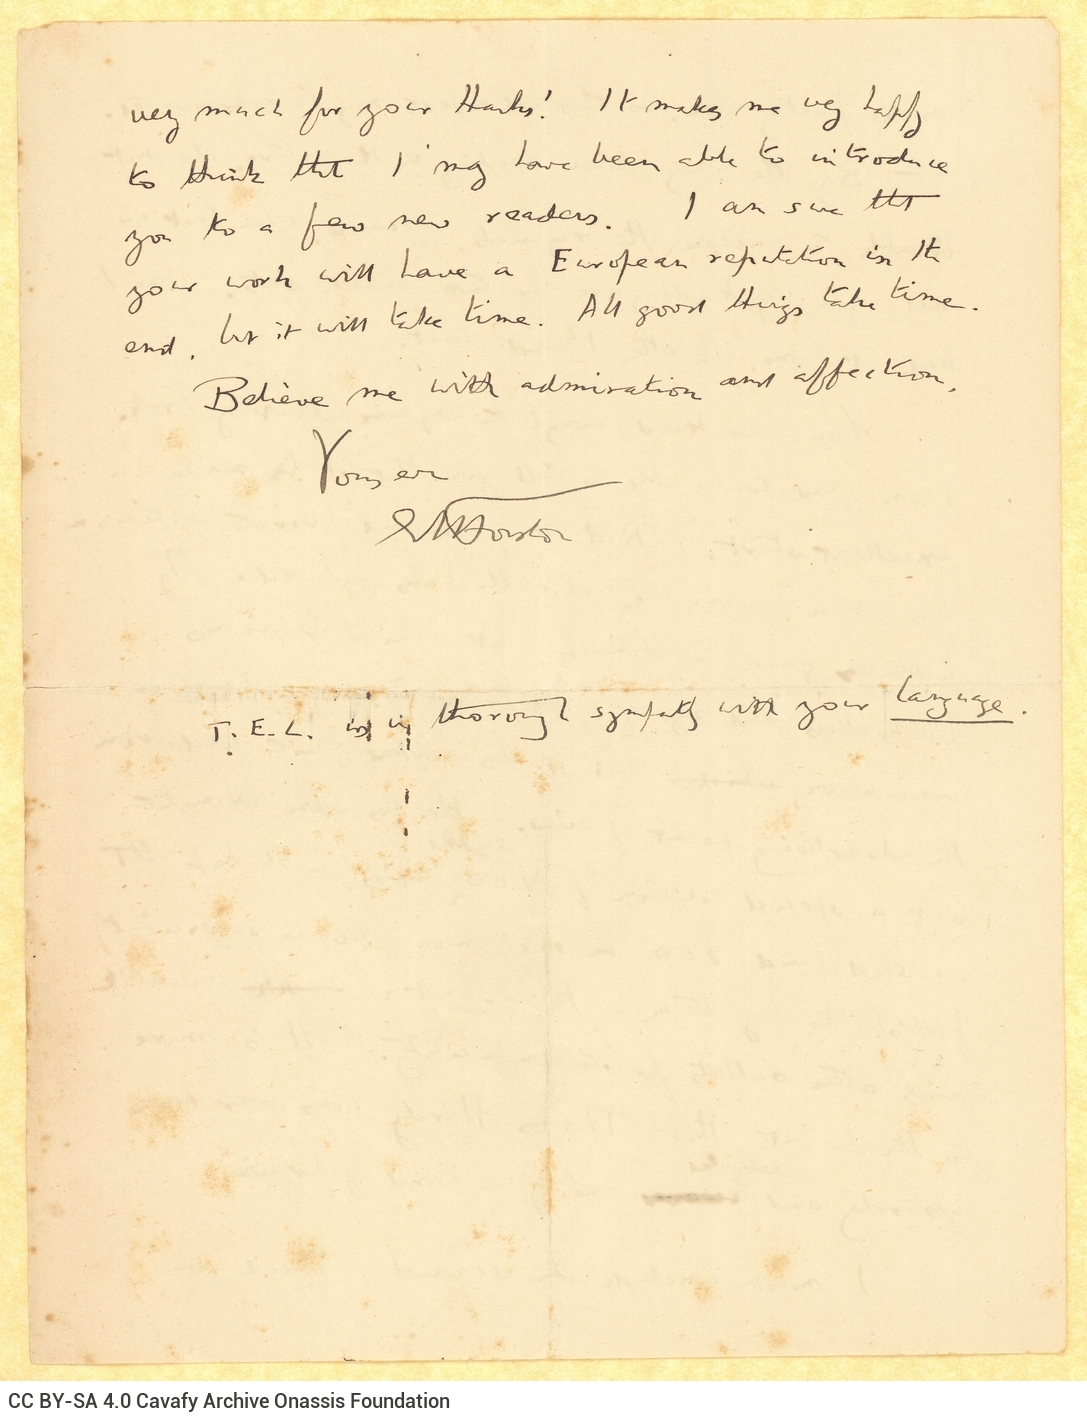 very much for your thanks! It makes me very happy
to think that I may have been able to introduce
you to a few new readers. I am sure that
your work will have a European reputation in the
end, but it will take time. All good things take time.
Believe me with admiration and affection,
Yours ever
EMForster
T. E. L. is in thorough sympathy with your language.
CC BY-SA 4.0 Cavafy Archive Onassis Foundation